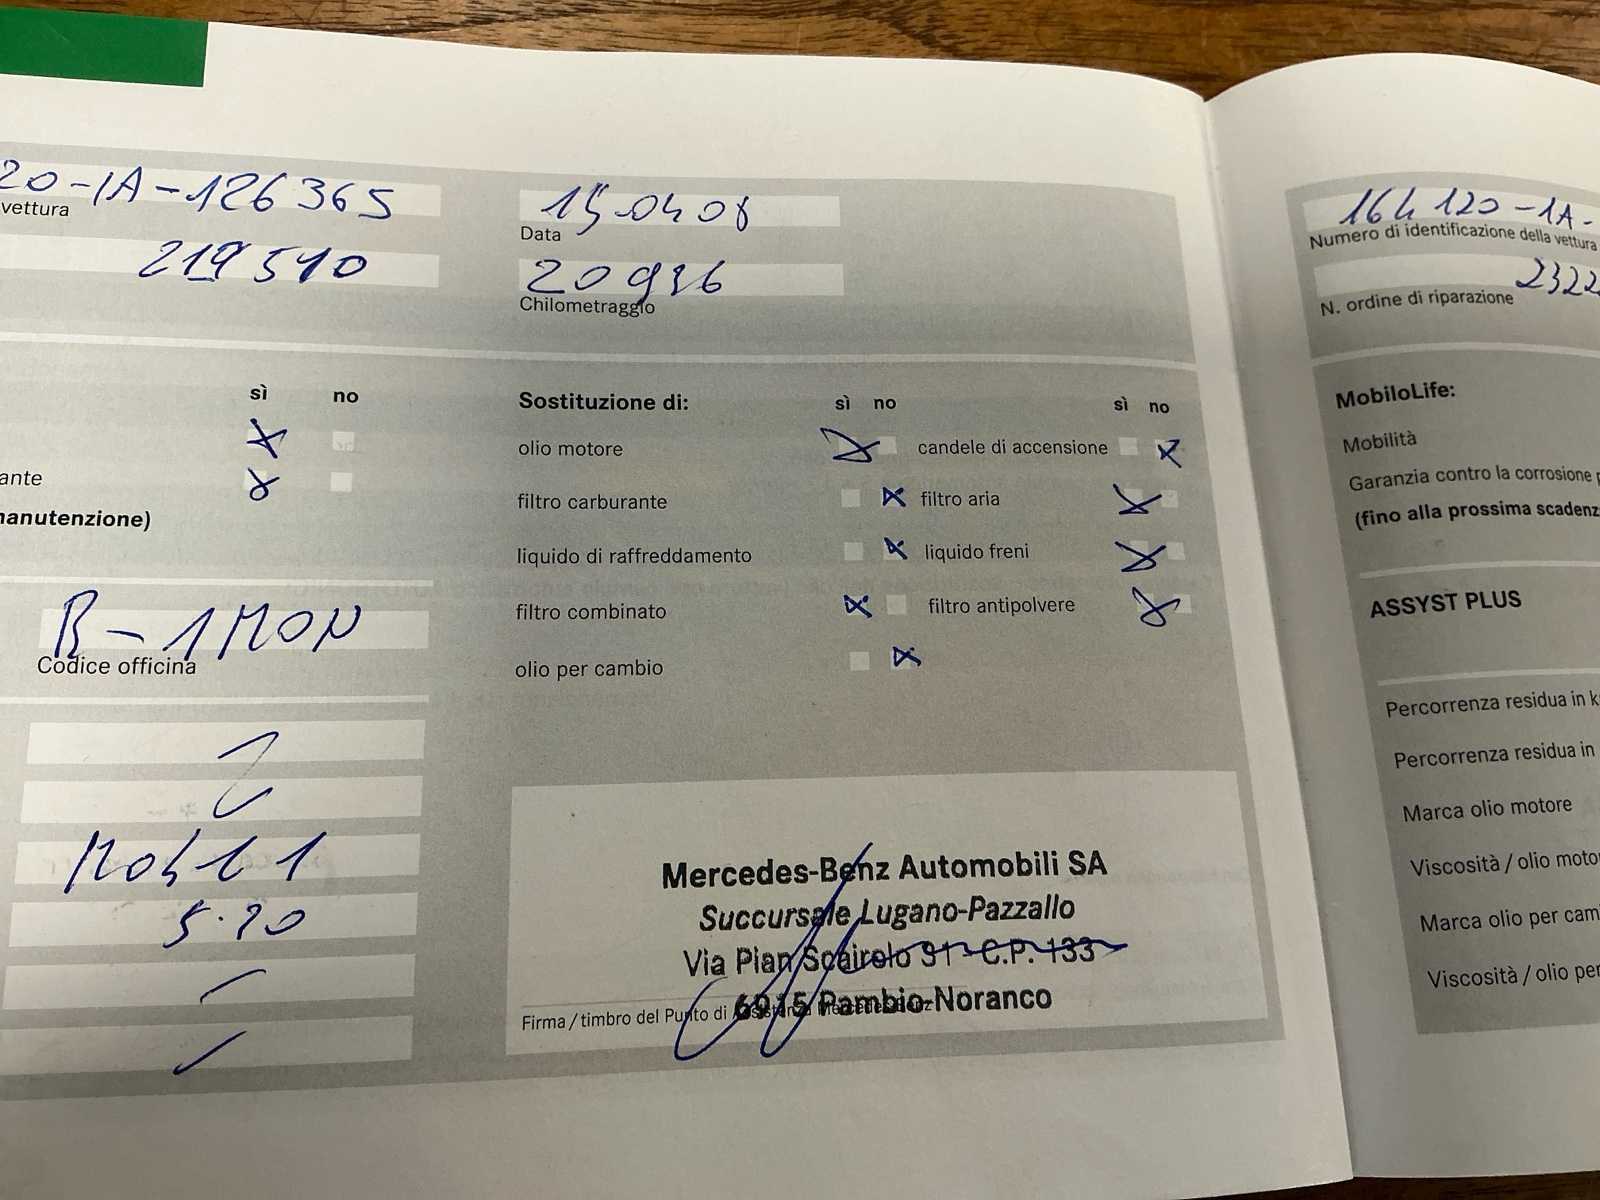 20-1A-126365
vettura
219510
15.04.08
Data
20926
Chilometraggio
sì no
ante
manutenzione)
B-1MON
Codice officina
5.20
Sostituzione di: sì no sì no
olio motore candele di accensione
filtro carburante filtro aria
liquido di raffreddamento liquido freni
filtro combinato filtro antipolvere
olio per cambio
Mercedes-Benz Automobili SA
Succursale Lugano-Pazzallo
Via Pian Scairolo 31 - C.P. 133
6915 Pambio-Noranco
Firma / timbro del Punto di Assistenza Mercedes-Benz
164 120-1A-
Numero di identificazione della vettura
2322
N. ordine di riparazione
MobiloLife:
Mobilità
Garanzia contro la corrosione p
(fino alla prossima scadenz
ASSYST PLUS
Percorrenza residua in k
Percorrenza residua in
Marca olio motore
Viscosità / olio moto
Marca olio per cam
Viscosità / olio per